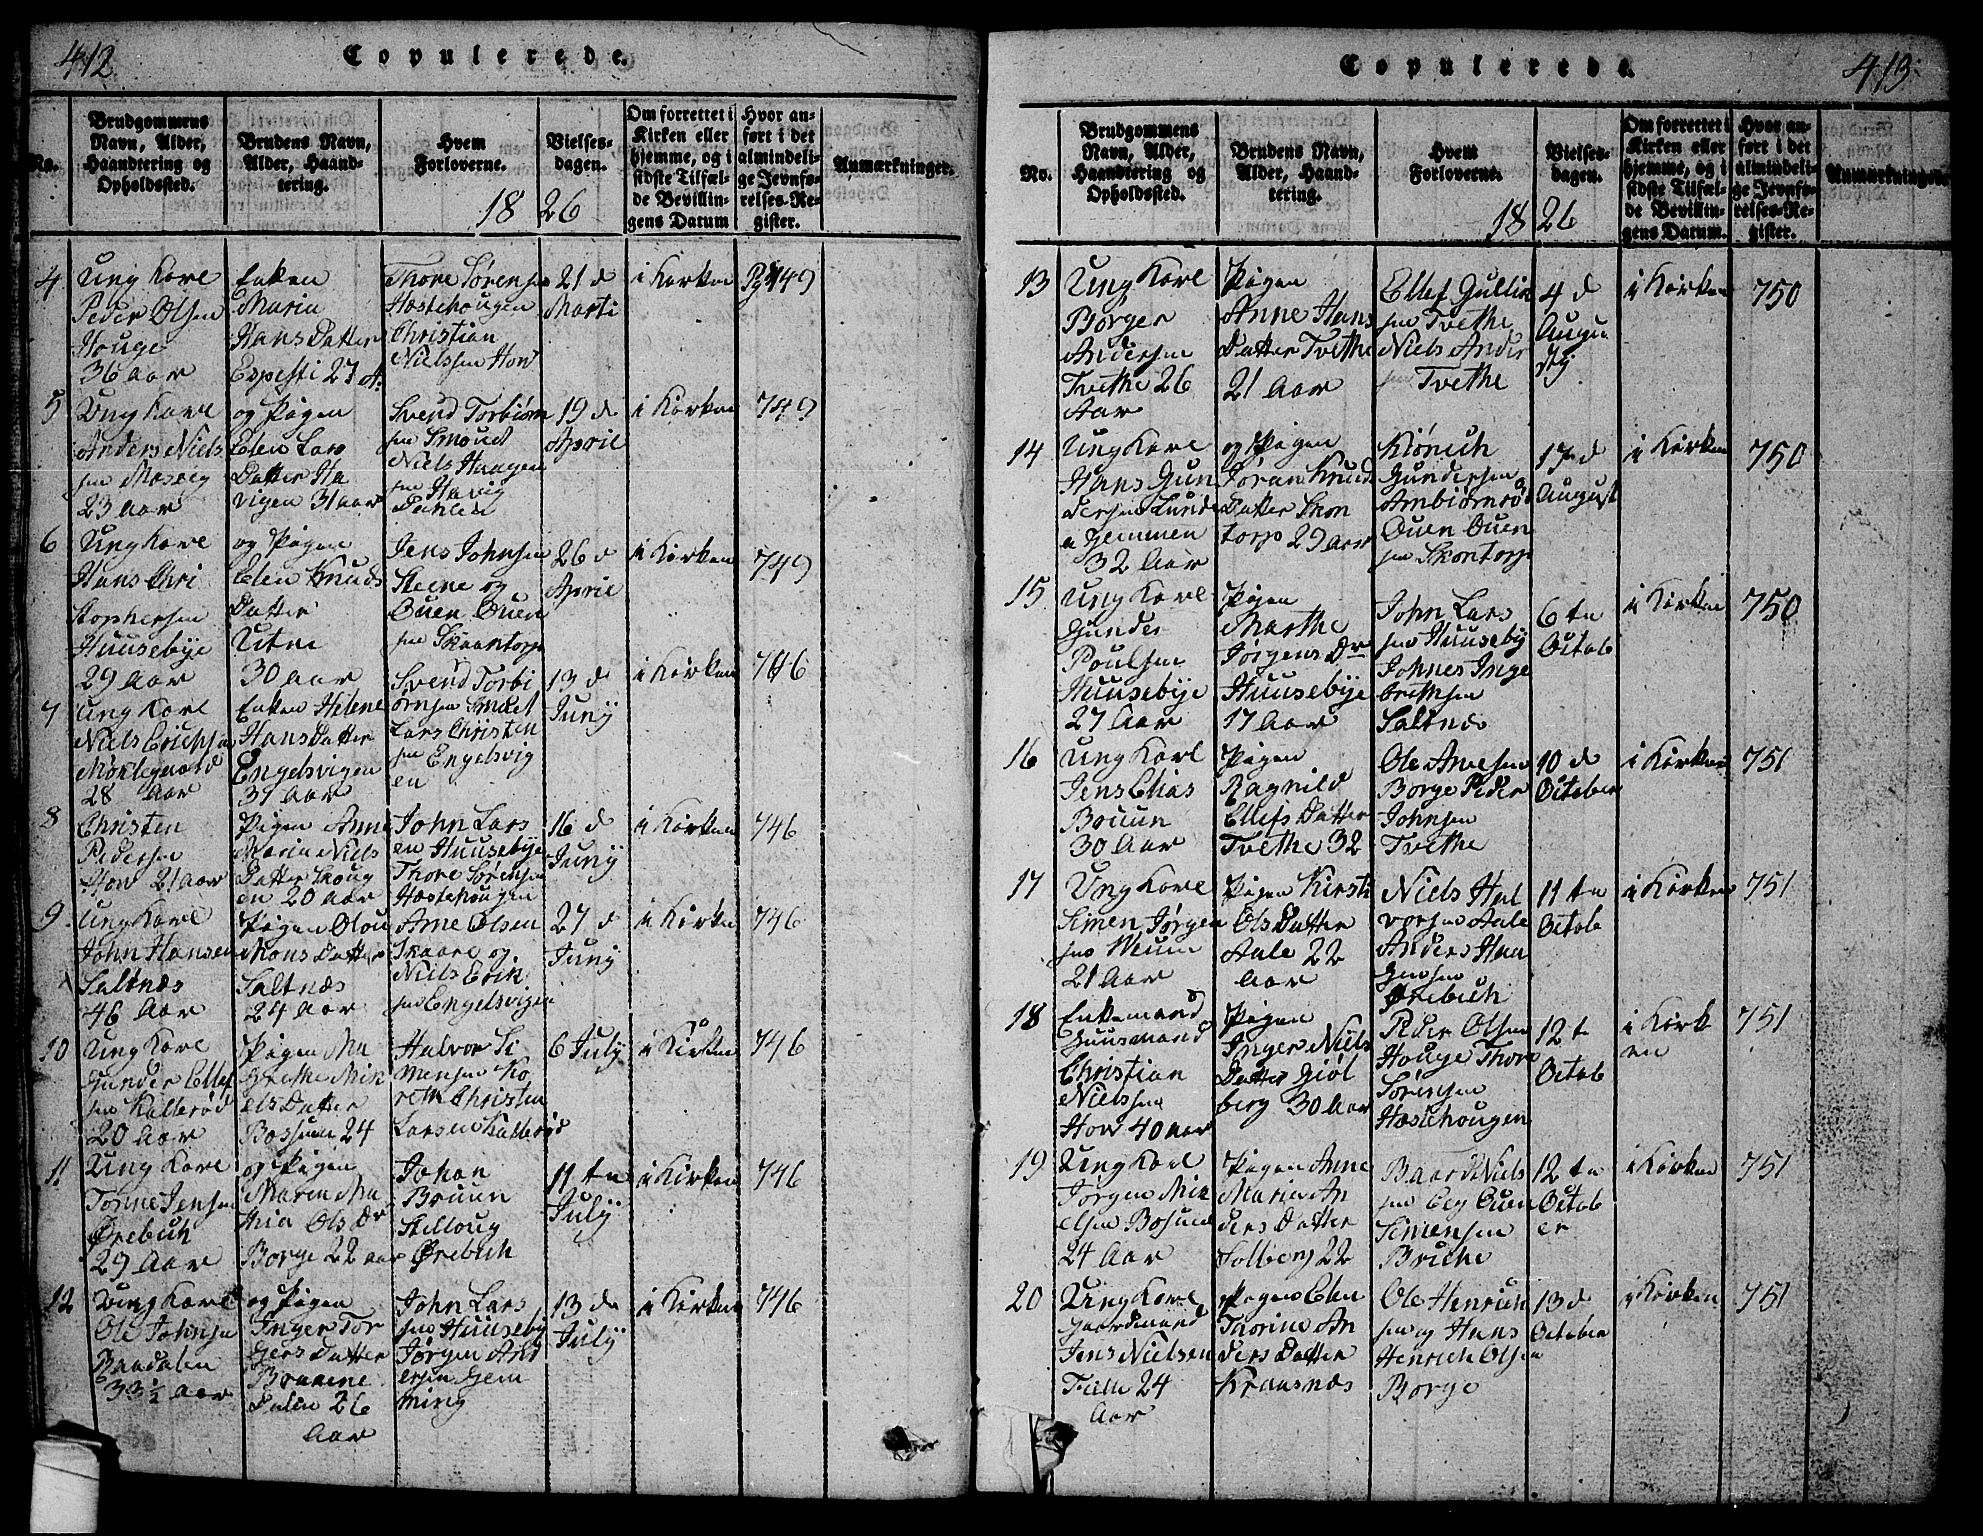 412
Copulerede.
No.
Brudgommens
Navn, Alder,
Haandtering og
Opholdssted.
Brudens Navn,
Alder, Haand-
tering.
Hvem
Forloverne.
Vielses-
dagen.
Om forrettet i
Kirken eller
hjemme, og i
sidste Tilfæl-
de Bevillin-
gens Datum
Hvor an-
ført i det
almindeli-
ge Jevnfø-
relses-Re-
gister.
Anmærkninger.
1826
4
Ung Karl
Peder Olsen
Houge
36 Aar
Enken
Maria
Hans Datter
Espesti 27 A.
Thore Sørensen
Hæstehougen
Christian
Nielssen How
21 d
Marti
i Kirken
749
5
Ung Karl
Anders Niels
sen
23 Aar
og Pigen
Elen Lars
Datter Ha
vigen 31 aar
Svend Torbiørn
sen Smaut
Niels Haagen
sen Havig
Dahlen
19 d
April
i Kirken
749
6
Ung Karl
Hans Chri
stophersen
Huusebye
29 Aar
og Pigen
Elen Knuds
Datter
Utne
30 aar
Jens Johnsen
Steene og
Ouen Ouen
sen Skaantorp
26 d
April
i Kirken
749
7
Ung Karl
Niels Erichsen
28 Aar
Enken Helene
Hans Datter
Engelsvigen
37 Aar
Svend Torbi
ørnsen Smaut
Lars Christen
sen Engelsvig
en
13 d
Junÿ
i Kirken
746
8
Christen
Pedersen
How 21 aar
Pigen Anne
Maria Niels
Datter Skoug
en 20 aar
John Lars
en Huusebye
Thore Sørensen
Hæstehougen
16 d
Junÿ
i Kirken
746
9
Ung Karl
John Hansen
Saltnæs
46 Aar
Pigen Olou
Mons Datter
Saltnæs
24 Aar
Arne Olsen
Skaare og
Niels Erik
sen Engelsvigen
27 d
Junÿ
i Kirken
746
10
Ung Karl
Gunder Ellef
sen Kallerød
20 Aar
Pigen Ma
Grethe Mik
els Datter
Bossum 24
Halvor Si
mensen Ko
reth Christen
Larsen Kallerød
6 Julÿ
i Kirken
746
11
Ung Karl
Tonne Jensen
Ørebech
29 Aar
og Pigen
Maren Ma
thia Ols Dr
Borge 22 aar
Johan
Bouun
Stilloug
Ørebech
11 tn
Julÿ
i Kirken
746
12
Ung Karl
Ole Johnsen
Baadalen
33 ½ Aar
og Pigen
Inger Tor
gers Datter
Braaene
dalen 26
Aar
John Lars
sen Huuseby
Jørgen And
ersen Gem
ming
13 de
Julÿ
i Kirken
746
413
Copulerede.
No.
Brudgommens
Navn, Alder,
Haandtering og
Opholdssted.
Brudens Navn,
Alder, Haand-
tering.
Hvem
Forloverne.
Vielses-
dagen.
Om forrettet i
Kirken eller
hjemme, og i
sidste Tilfæl-
de Bevillin-
gens Datum.
Hvor an-
ført i det
almindeli-
ge Jevnfø-
relses-Re-
gister.
Anmærkninger.
1826
13
Ung Karl
Børger
Andersen
Tvethe 26
Aar
Pigen
Anne Hans
Datter Tvethe
21 Aar
Ellef Gullik
sen Tvethe
Niels Ander
sen Tvethe
4 d
Augu
stÿ
i Kirken
750
14
Ung Karl
Hans Gun
dersen Lunde
Gemmen
32 Aar
og Pigen
Jøran Knud
Datter Skon
torp 29 aar
Kiønich
Gundersen
Ambiørnrød
Ouen Ouen
sen Skontorp
17 d
August
i Kirken
750
15
Ung Karl
Gunder
Poulsen
Huusebye
27 Aar
Pigen
Marthe
Jørgens Dr
Huusebye
17 Aar
John Lars
sen Huuseby
Johnes Inge
brethsen
Saltnæs
6 tn
Octob
i Kirken
750
16
Ung Karl
Jens Elias
Bouun
30 Aar
Pigen
Ragnild
Ellefs Datter
Tvethe 32
Ole Arnesen
Borge Peder
Johnsen
Tvethe
10 d
October
i Kirken
751
17
Ung Karl
Simen Jørgen
sen Mum
21 Aar
Pigen Kirsti
Ols Datter
Aale 22
Aar
Niels Hal
vorsen Aale
Anders Haa
gensen
Ørebech
11 tn
Octob
i Kirken
751
18
Enkemand
Huusmand
Christian
Nielssen
How 40 aar
Pigen
Inger Niels
Datter Giøl
berg 30 Aar
Peder Olsen
Houge Thore
Sørensen
Hæstehougen
12 t
Octob
i Kirk
en
751
19
Ung Karl
Jørgen Mik
elsen Bosum
24 Aar
Pigen Anne
Maria An
ders Datter
Solberg 22
Baard Niels
sen Eeg Ouen
Simensen
Briche
12 tn
Octob
er
i Kirken
751
20
Ung Karl
Gaardmand
Jens Nielsen
Fæll 24
Aar
Pigen Elen
Thorine An
ders Datter
Kraasnæs
Ole Henrich
sen og Hans
Henrich Olsen
Borge
13 d
October
i Kirken
751